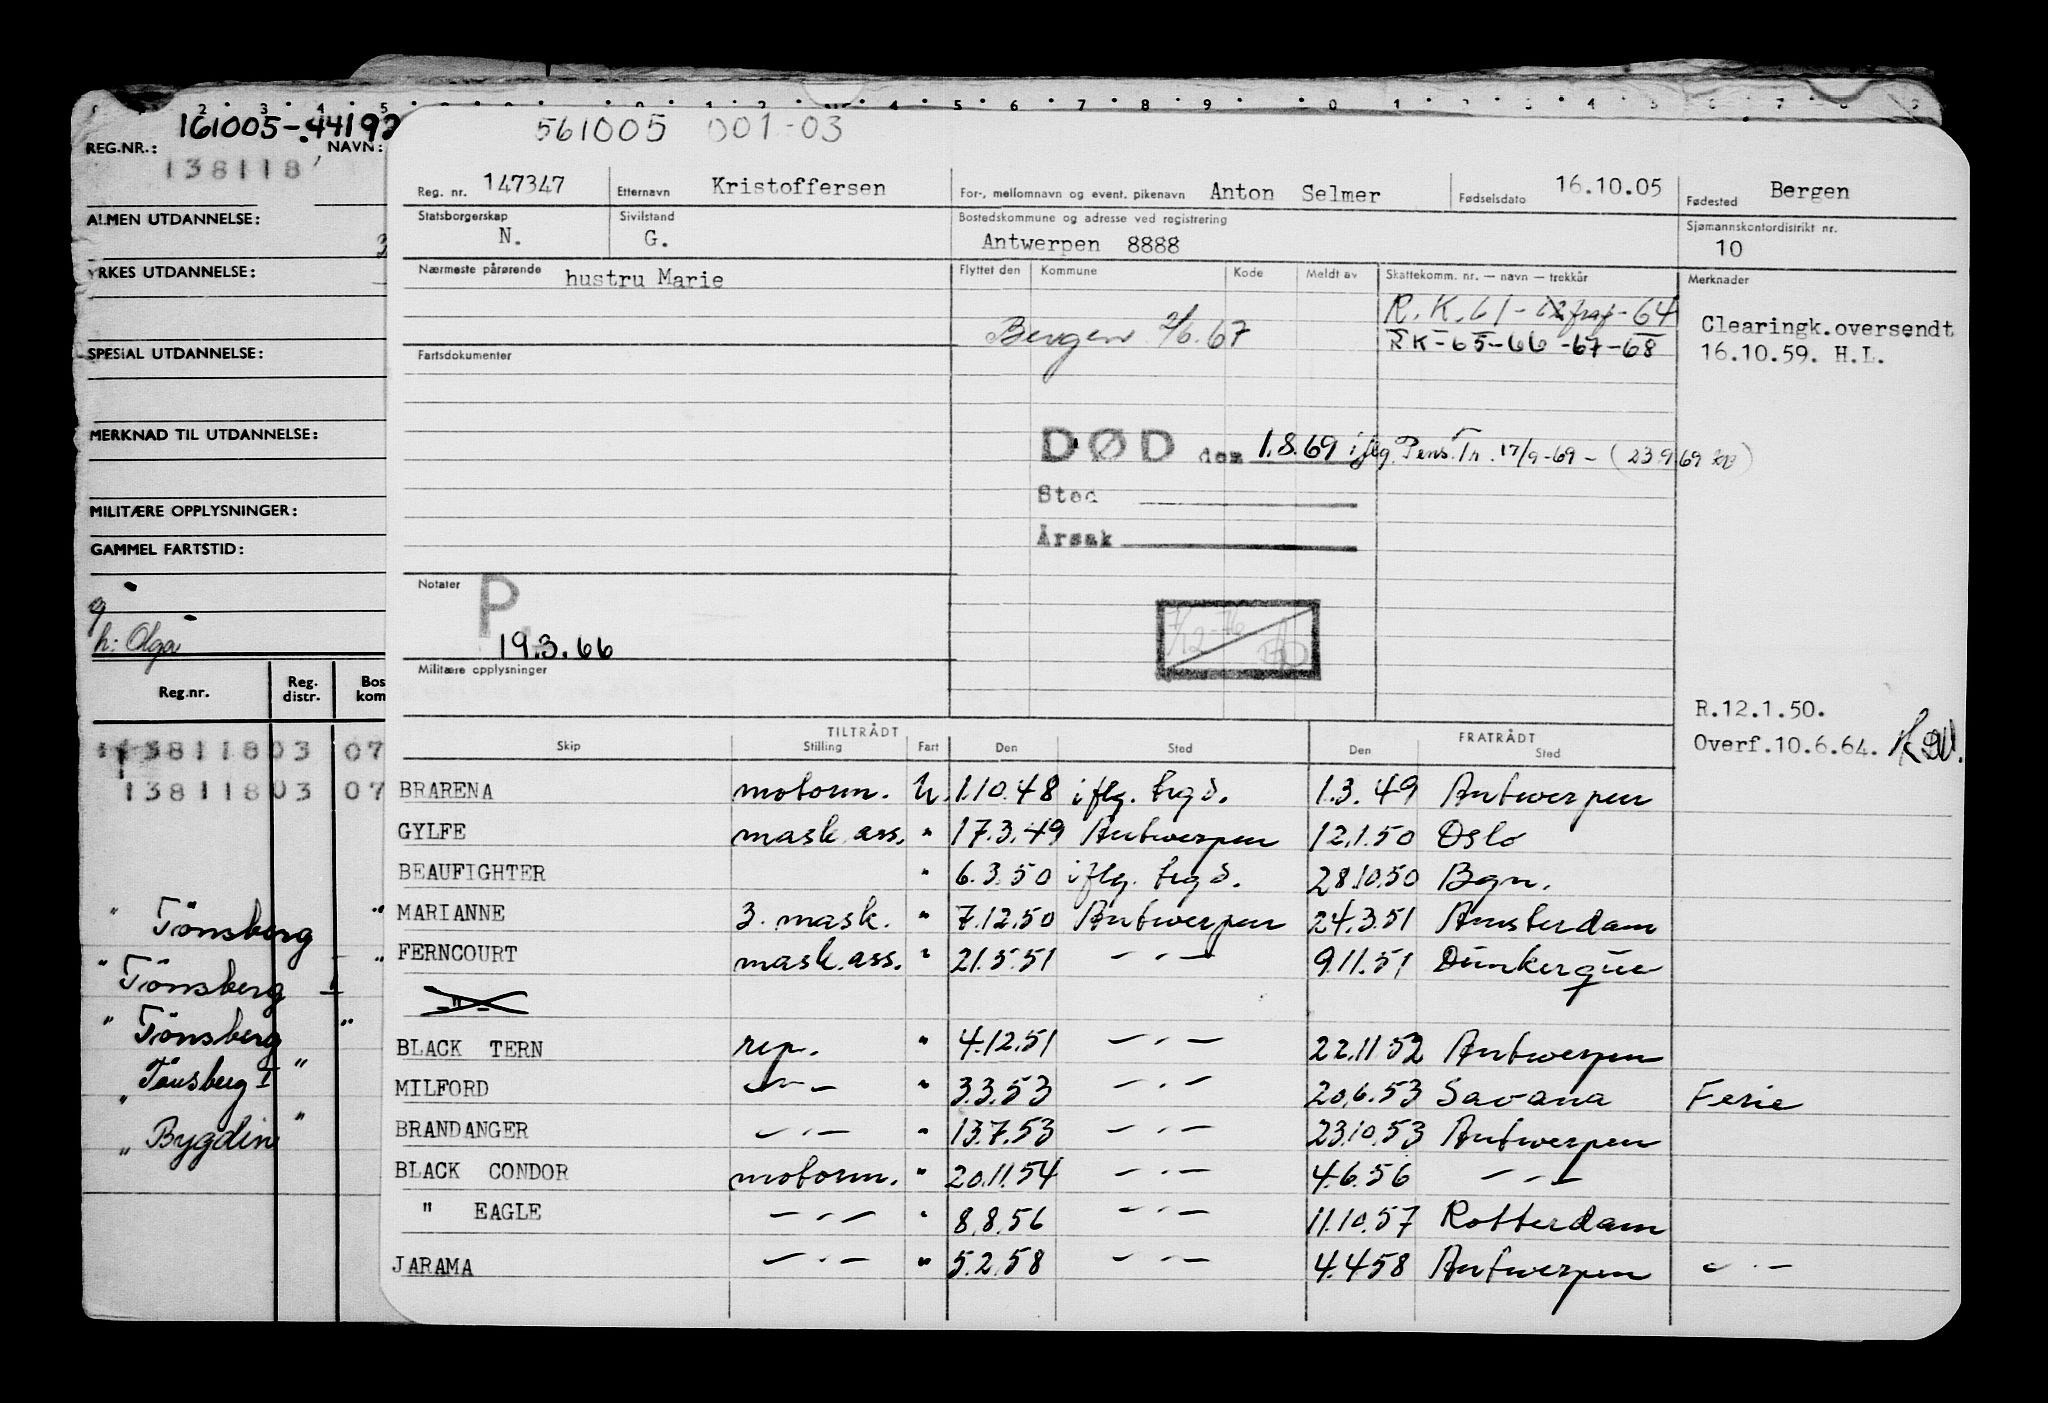 161005-44192
REG.NR.: NAVN:
138118
ALMEN UTDANNELSE:
YRKES UTDANNELSE:
SPESIAL UTDANNELSE:
MERKNAD TIL UTDANNELSE:
MILITÆRE OPPLYSNINGER:
GAMMEL FARTSTID:
g
h: Olga
Reg.nr. Reg. distr. Bos kom
13811803 07
13811803 07
" Tönsberg "
" Tönsberg "
" Tönsberg "
" Tönsberg I "
" Bygdin "
561005 001-03
Reg. nr. 147347 Etternavn Kristoffersen For-, mellomnavn og event. pikenavn Anton Selmer Fødselsdato 16.10.05 Fødested Bergen
Statsborgerskap N. Sivilstand G. Bostedskommune og adresse ved registrering Antwerpen 8888 Sjømannskontordistrikt nr. 10
Nærmeste pårørende hustru Marie Flyttet den Kommune Kode Meldt av Skattekomm. nr. — navn — trekkår Merknader
R.K. 61 - 62 - 64
Bergen 2/6.67 RK-65-66-67-68
Clearingk.oversendt
16.10.59. H.L.
Fartsdokumenter
DØD den 1.8.69 iflg. Pens.Tr. 17/9-69 - (23.9.69
Sted
Årsak
Notater P.
19.3.66
Militære opplysninger
R.12.1.50.
Overf.10.6.64.
TILTRÅDT FRATRÅDT
Skip Stilling Fart Den Sted Den Sted
BRARENA motorm. U. 1.10.48 iflg. trgd. 1.3.49 Antwerpen
GYLFE mask.ass. " 17.3.49 Antwerpen 12.1.50 Oslo
BEAUFIGHTER " 6.3.50 iflg. trgd. 28.10.50 Bgn.
MARIANNE 3. mask. " 7.12.50 Antwerpen 24.3.51 Amsterdam
FERNCOURT mask.ass. " 21.5.51 — " — 9.11.51 Dunkerque
BLACK TERN rep. " 4.12.51 — " — 22.11.52 Antwerpen
MILFORD — " — " 3.3.53 — " — 20.6.53 Savana Ferie
BRANDANGER — " — " 13.7.53 — " — 23.10.53 Antwerpen
BLACK CONDOR motorm. " 20.11.54 — " — 4.6.56 — " —
" EAGLE — " — " 8.8.56 — " — 11.10.57 Rotterdam
JARAMA — " — " 5.2.58 — " — 4.4.58 Antwerpen — " —